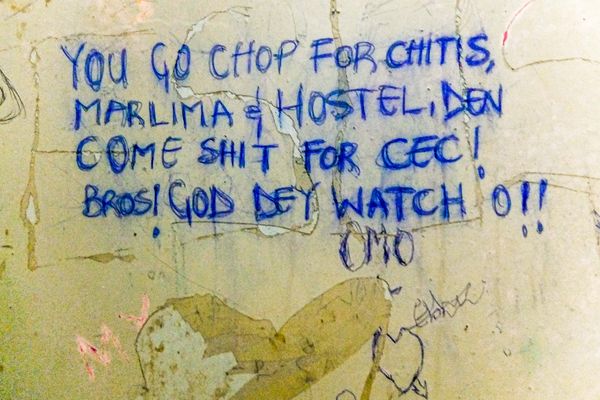 YOU GO CHOP FOR CHITIS,
MARLIMA & HOSTEL, DEN
COME SHIT FOR CEC!
BROS! GOD DEY WATCH O!!
OMO